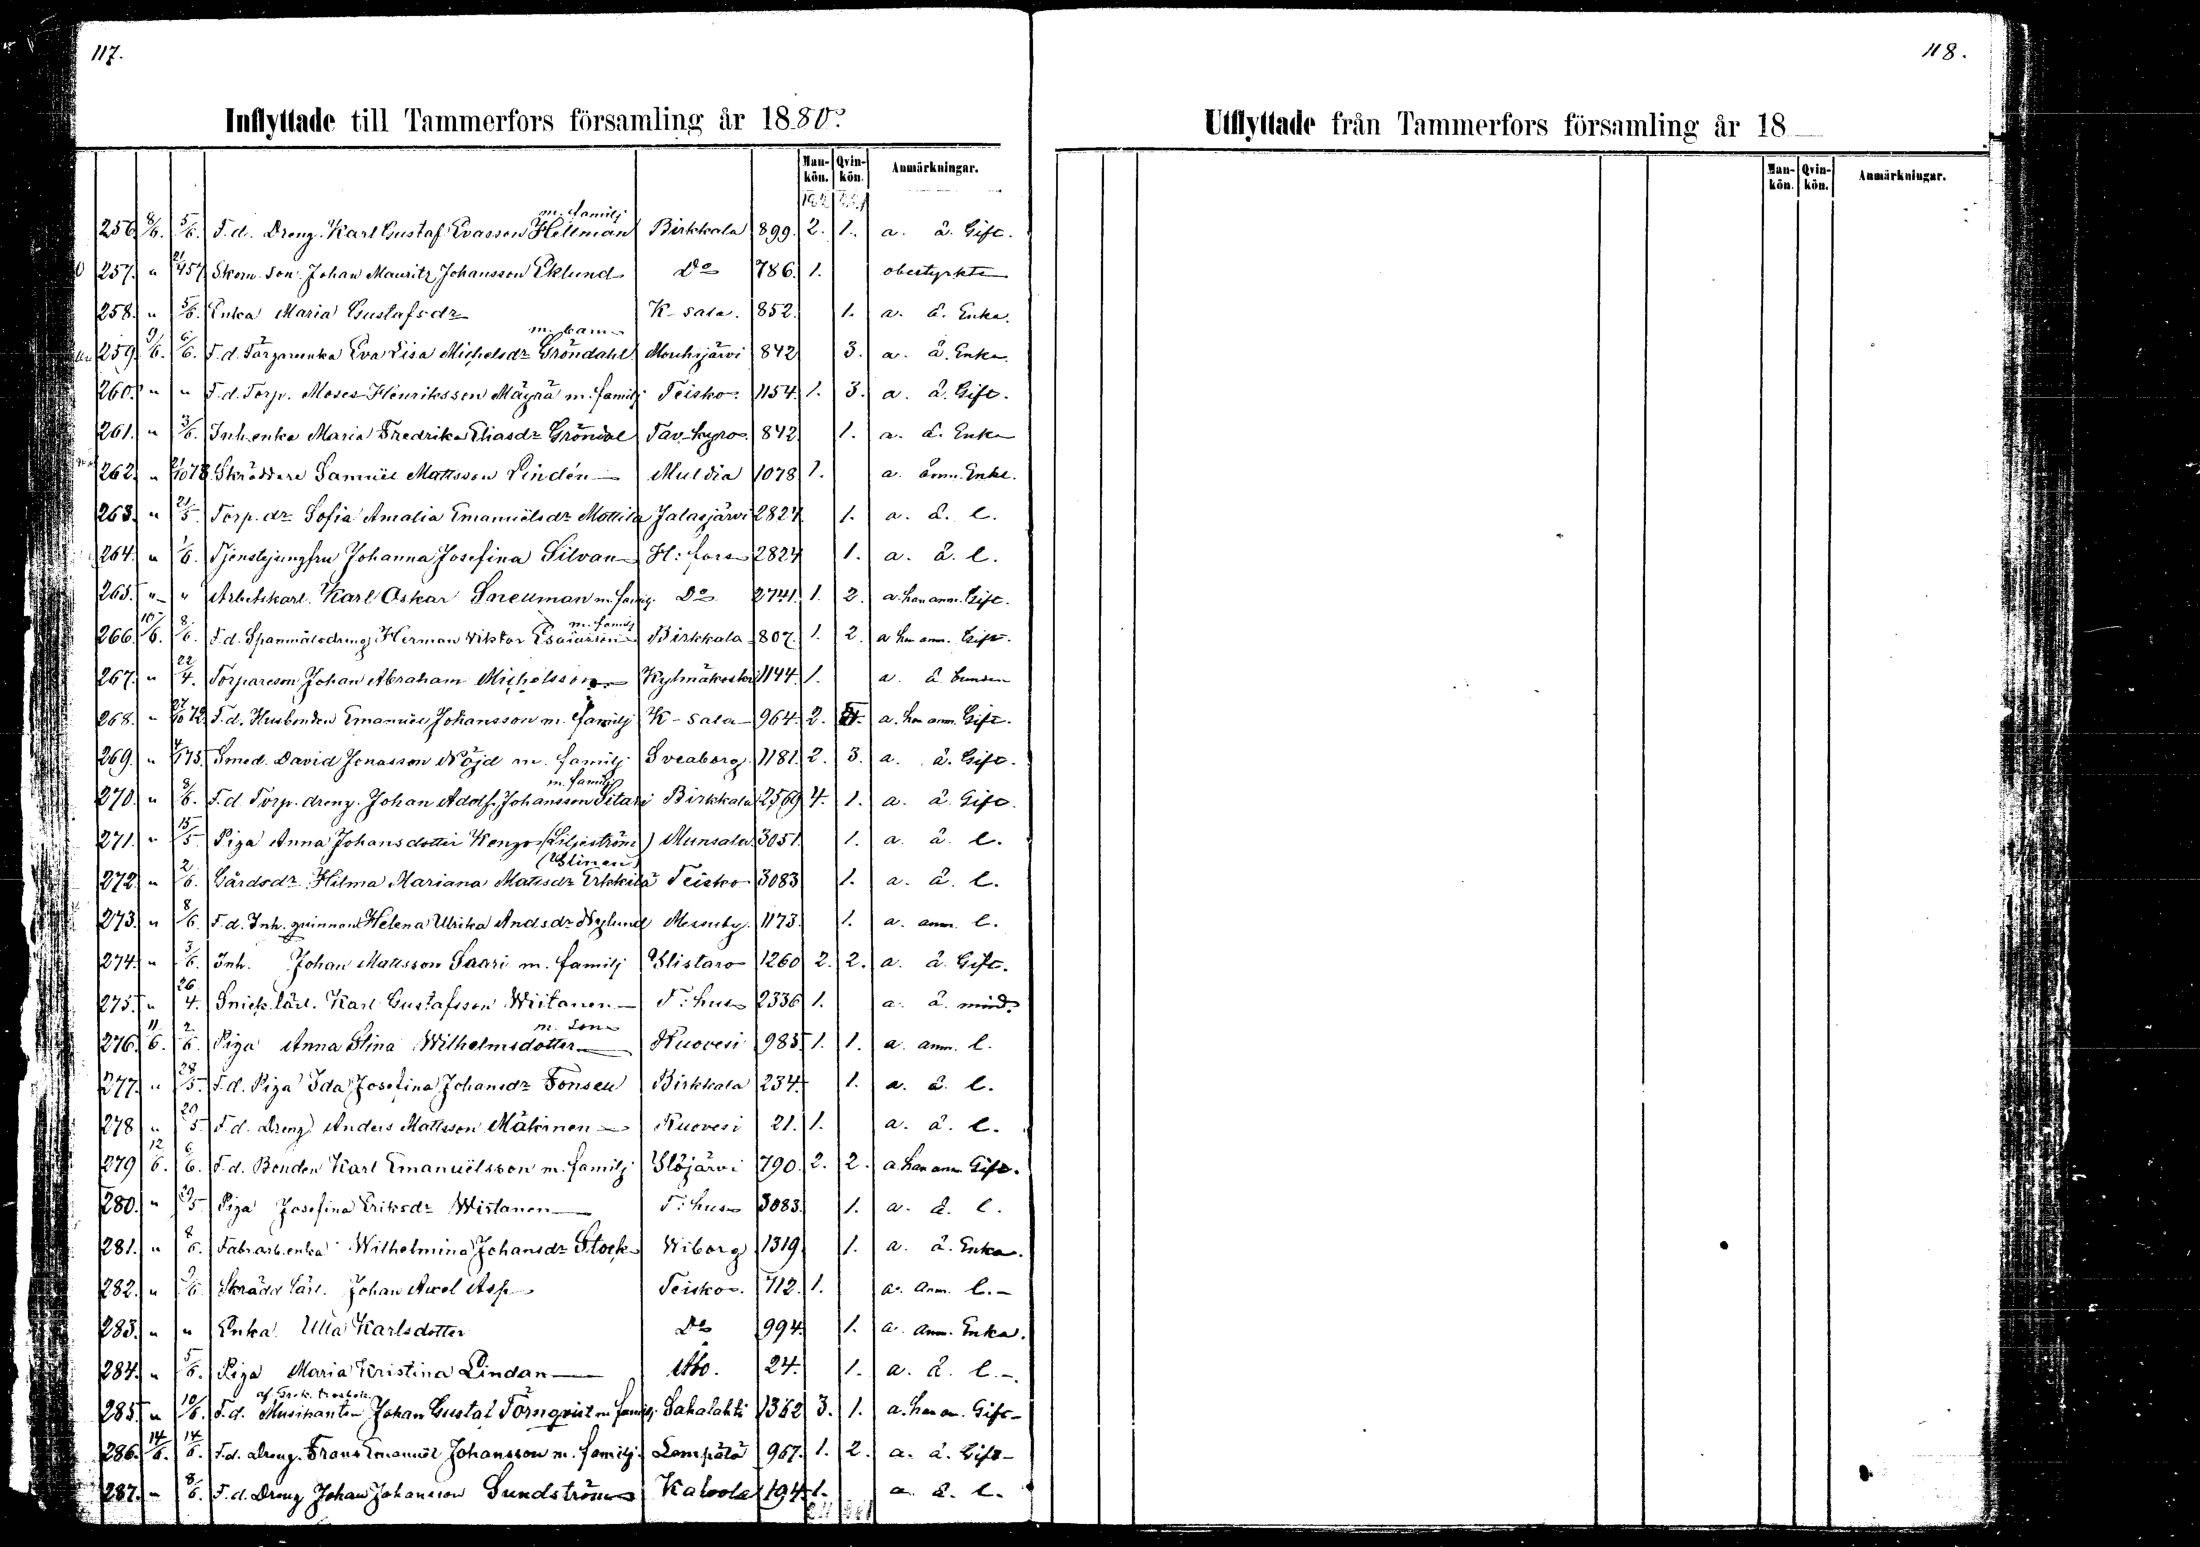 117.
Inflyttade till Tammerfors församling år 1880.
Man-kön. Qvin-kön. Anmärkningar.
256. 8/6. 5/6. F.d. Dreng. Karl Gustaf Evasson Hellman m. familj Birkkala 899. 2. 1. a. å. Gift.
257. " Skom. son Johan Mauritz Johansson Eklund Do 786. 1. obestyrkta
258. " 5/6. Enka Maria Gustafsdr K-sala. 852. 1. a. å. Enka.
259. 9/6. 6/6. F.d. Färgareenka Eva Lisa Michelsdr Gröndahl m. barn Mouhijärvi 842 3. a. å. Enka.
260. " " F.d. Torp. Moses Henriksson Mäyrä m. familj Teisko 1154. 1. 3. a. å. Gift.
261. " 3/6. Inh. enka Maria Fredrika Eliasdr Gröndal Tav-kyro 842. 1. a. å. Enka
262. " Skräddare Samuel Mattsson Lindén Muldia 1078 1. a. anm. Enkl.
263. " 21/5. Torp. dr Sofia Amalia Emanuelsdr Mottila Jalasjärvi 2824. 1. a. å. l.
264. " 1/6. Tjenstejungfru Johanna Josefina Silvan H:fors 2824 1. a. å. l.
265. " " Arbetskarl. Karl Oskar Snellman m. familj. Do 2741. 1. 2. a. han anm. Gift.
266. 10/6. 8/6. F.d. Spanmålsdreng Herman Viktor Esaiasson m. familj Birkkala 807. 1. 2. a han anm. Gift.
267. " 22/4. Torpareson Johan Abraham Michelsson Kylmäkoski 1144. 1. a. å bunden
268. " F.d. Husbonden Emanuel Johansson m. familj K-sala 964. 2. a. han anm. Gift.
269. " Smed. David Jonasson Nöjd m. familj Sveaborg. 1181. 2. 3. a. å. Gift.
270. " 8/6. F.d. Torp. dreng. Johan Adolf Johansson Sitari m. familj Birkkala 2569 4. 1. a. å. Gift.
271. " 15/5. Piga Anna Johansdotter Kengo (Liljeström) Munsala 3051. 1. a. å. l.
272. " 2/6. Gårdsdr Hilma Mariana Mattsdr Erkkilä (Elinen) Teisko 3083 1. a. å. l.
273. " 8/6. F.d. Inh. qvinnan Helena Ulrika Andsdr Nylund Messuby. 1173. 1. a. anm. l.
274. " 3/6. Inh. Johan Mattsson Saari m. familj Ylistaro 1260 2. 2. a. å. Gift.
275. " 26/4. Snick. lärl. Karl Gustafsson Wiitanen T:hus 2336 1. a. å. mind.
276. 11/6. 2/6. Piga Anna Stina Wilhelmsdotter m. son Ruovesi 985. 1. 1. a. anm. l.
277. " 28/5. F.d. Piga Ida Josefina Johansdr Fonsell Birkkala 234. 1. a. å. l.
278 " 20/5. F.d. Dreng Anders Mattsson Mäkinen Ruovesi 21. 1. a. å. l.
279 12/6. 6/6. F.d. Bonden Karl Emanuëlsson m. familj Ylöjärvi 790. 2. 2. a. han anm. Gift.
280. " Piga Josefina Eriksdr Wistanen T:hus 3083. 1. a. å. l.
281. " 8/6. Fabr.arb.enka Wilhelmina Johansdr Stock Wiborg 1319. 1. a. å. Enka.
282. " 9/6. Skrädd lärl. Johan Axel Asp Teisko. 712. 1. a. anm. l.
283. " " Enka Ulla Karlsdotter Do 994. 1. a. anm. Enka.
284. " 5/6. Piga Maria Kristina Lindan Åbo. 24. 1. a. å. l.
285. " 10/6. F.d. Musikanten Johan Gustaf Törnqvist m. familj. Sahalahti 1362 3. 1. a. han an. Gift
286. 14/6. 14/6. F.d. Dreng. Frans Emanuel Johansson m. familj. Lempälä 967. 1. 2. a. å. Gift
287. " 8/6. F.d. Dreng Johan Johansson Sundström Kalvola 194. 1. a. å. l.
118.
Utflyttade från Tammerfors församling år 18
Man-kön. Qvin-kön. Anmärkningar.